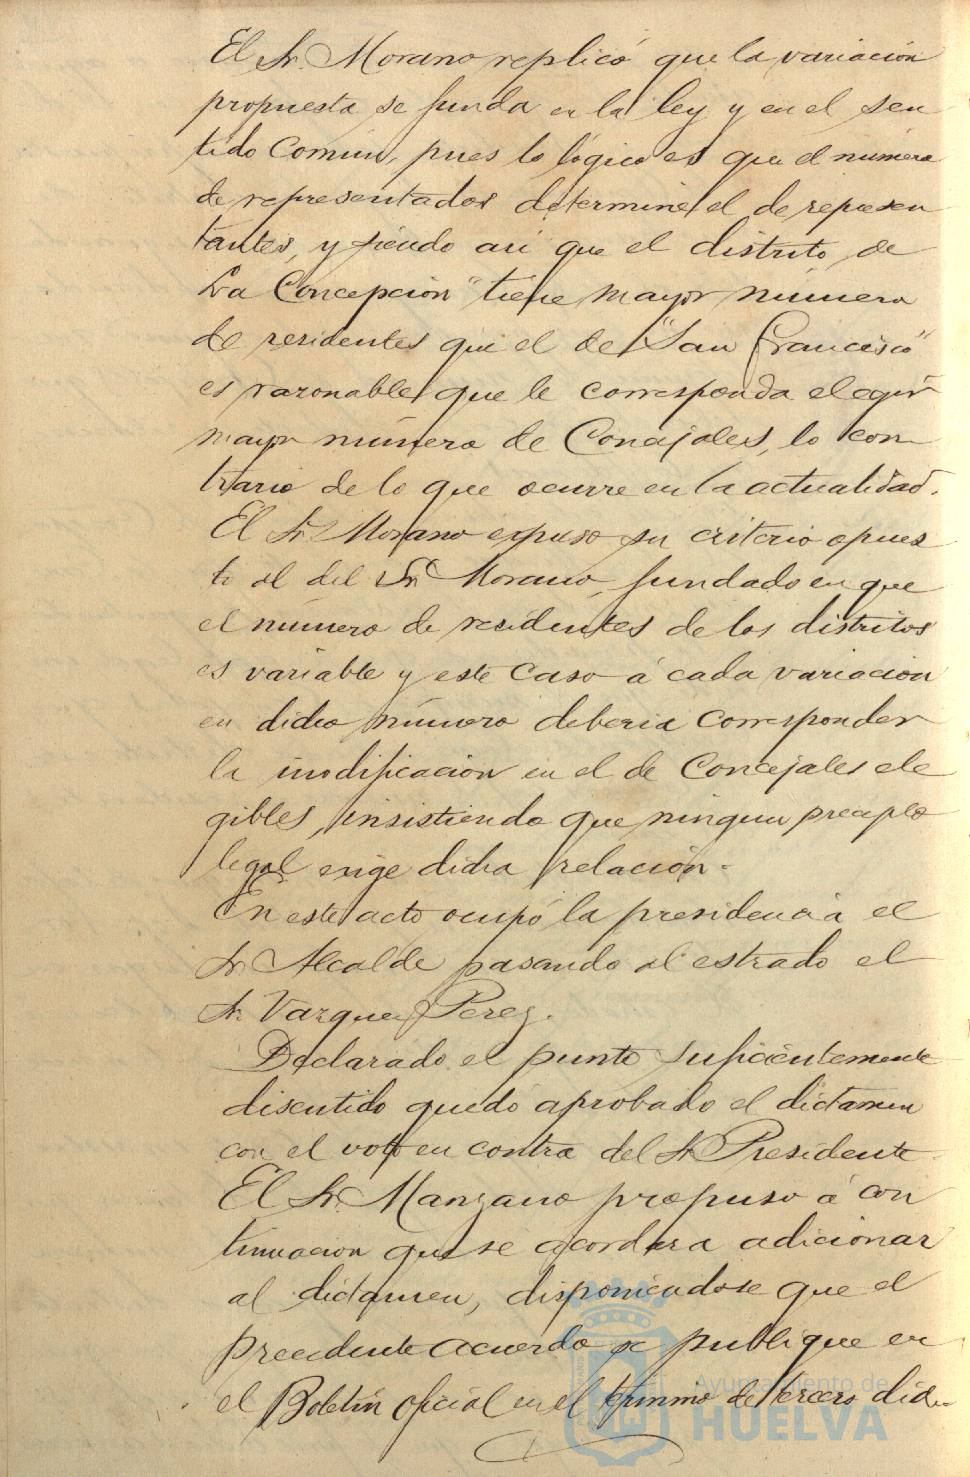 El Sr. Morano replicó que la variación
propuesta se funda en la ley y en el sen
tido Común, pues lo lógico es que el número
de representados determine el de represen
tantes, y siendo asi que el distrito de
La Concepción" tiene mayor número
de residentes que el de "San Francisco"
es razonable que le corresponda elegir
mayor número de Concejales, lo con
trario de lo que ocurre en la actualidad.
El Sr Morano expuso su criterio opues
to al del Sr Morano, fundado en que
el número de residentes de los distritos
es variable y este caso á cada variación
en dicho número deberia corresponder
la modificación en el de Concejales ele
gibles, insistiendo que ningun precepto
legal exige dicha relación.
En este acto ocupó la presidencia el
Sr Alcalde pasando al estrado el
Sr Vazquez Perez.
Declarado el punto suficientemente
discutido quedó aprobado el dictamen
con el voto en contra del Sr Presidente
El Sr. Manzano propuso á con
tinuacion que se acordara adicionar
al dictamen, disponiendose que el
precedente acuerdo se publique en
el Boletin oficial en el termino de tercero dia
Ayuntamiento de
HUELVA